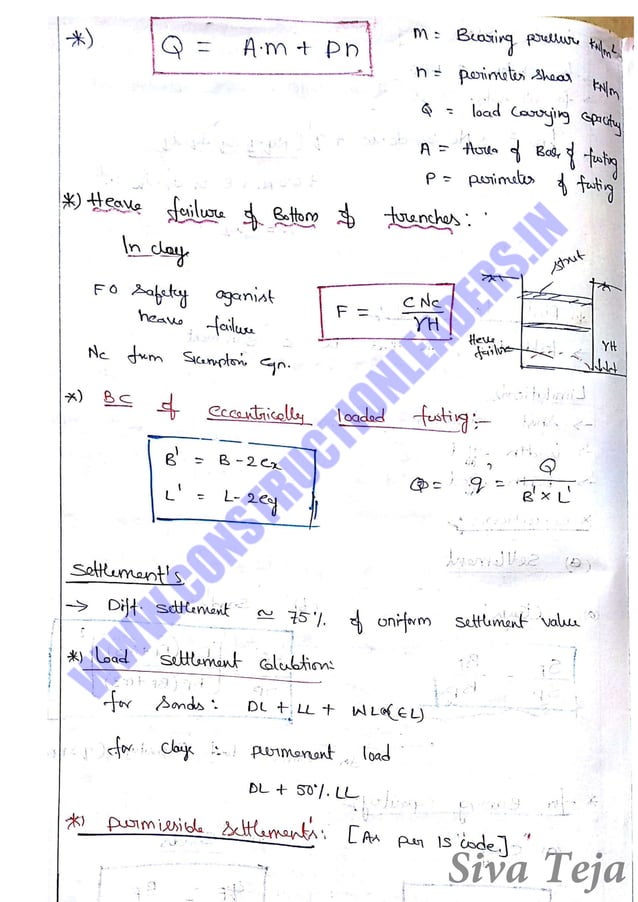 *) Q = A.m + Pn
m = Bearing pressure KN/m²
n = perimeter shear KN/m
Q = load carrying capacity
A = Area of Base of footing
P = perimeter of footing
*) Heave failure of Bottom of trenches:
In clay
FO Safety aganist
heave failure
F = CNc / γH
Nc from Skempton eqn.
strut
Heve
failure
γH
*) BC of eccentrically loaded footing:-
B' = B - 2ex
L' = L - 2ey
Q = q' = Q / B' x L'
Settlement's
→ Diff. settlement ≃ 75% of uniform settlement value
*) Load settlement calculation:
for Sands: DL + LL + WL or (EL)
for clays: permenent load
DL + 50% LL
*) permissible settlement's: [As per IS code.] "
WWW.CONSTRUCTIONLEADERS.IN
Siva Teja